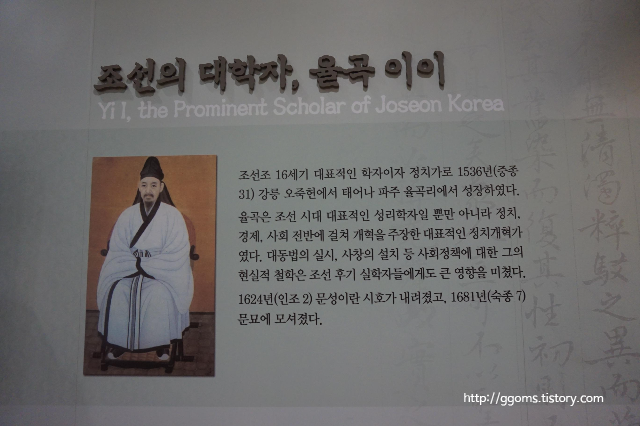 조선의 대학자, 율곡 이이
Yi I, the Prominent Scholar of Joseon Korea
조선조 16세기 대표적인 학자이자 정치가로 1536년(중종
31) 강릉 오죽헌에서 태어나 파주 율곡리에서 성장하였다.
율곡은 조선 시대 대표적인 성리학자일 뿐만 아니라 정치,
경제, 사회 전반에 걸쳐 개혁을 주장한 대표적인 정치개혁가
였다. 대동법의 실시, 사창의 설치 등 사회정책에 대한 그의
현실적 철학은 조선 후기 실학자들에게도 큰 영향을 미쳤다.
1624년(인조 2) 문성이란 시호가 내려졌고, 1681년(숙종 7)
문묘에 모셔졌다.
無清濁粹駁之異而
而復其性初
http://ggoms.tistory.com